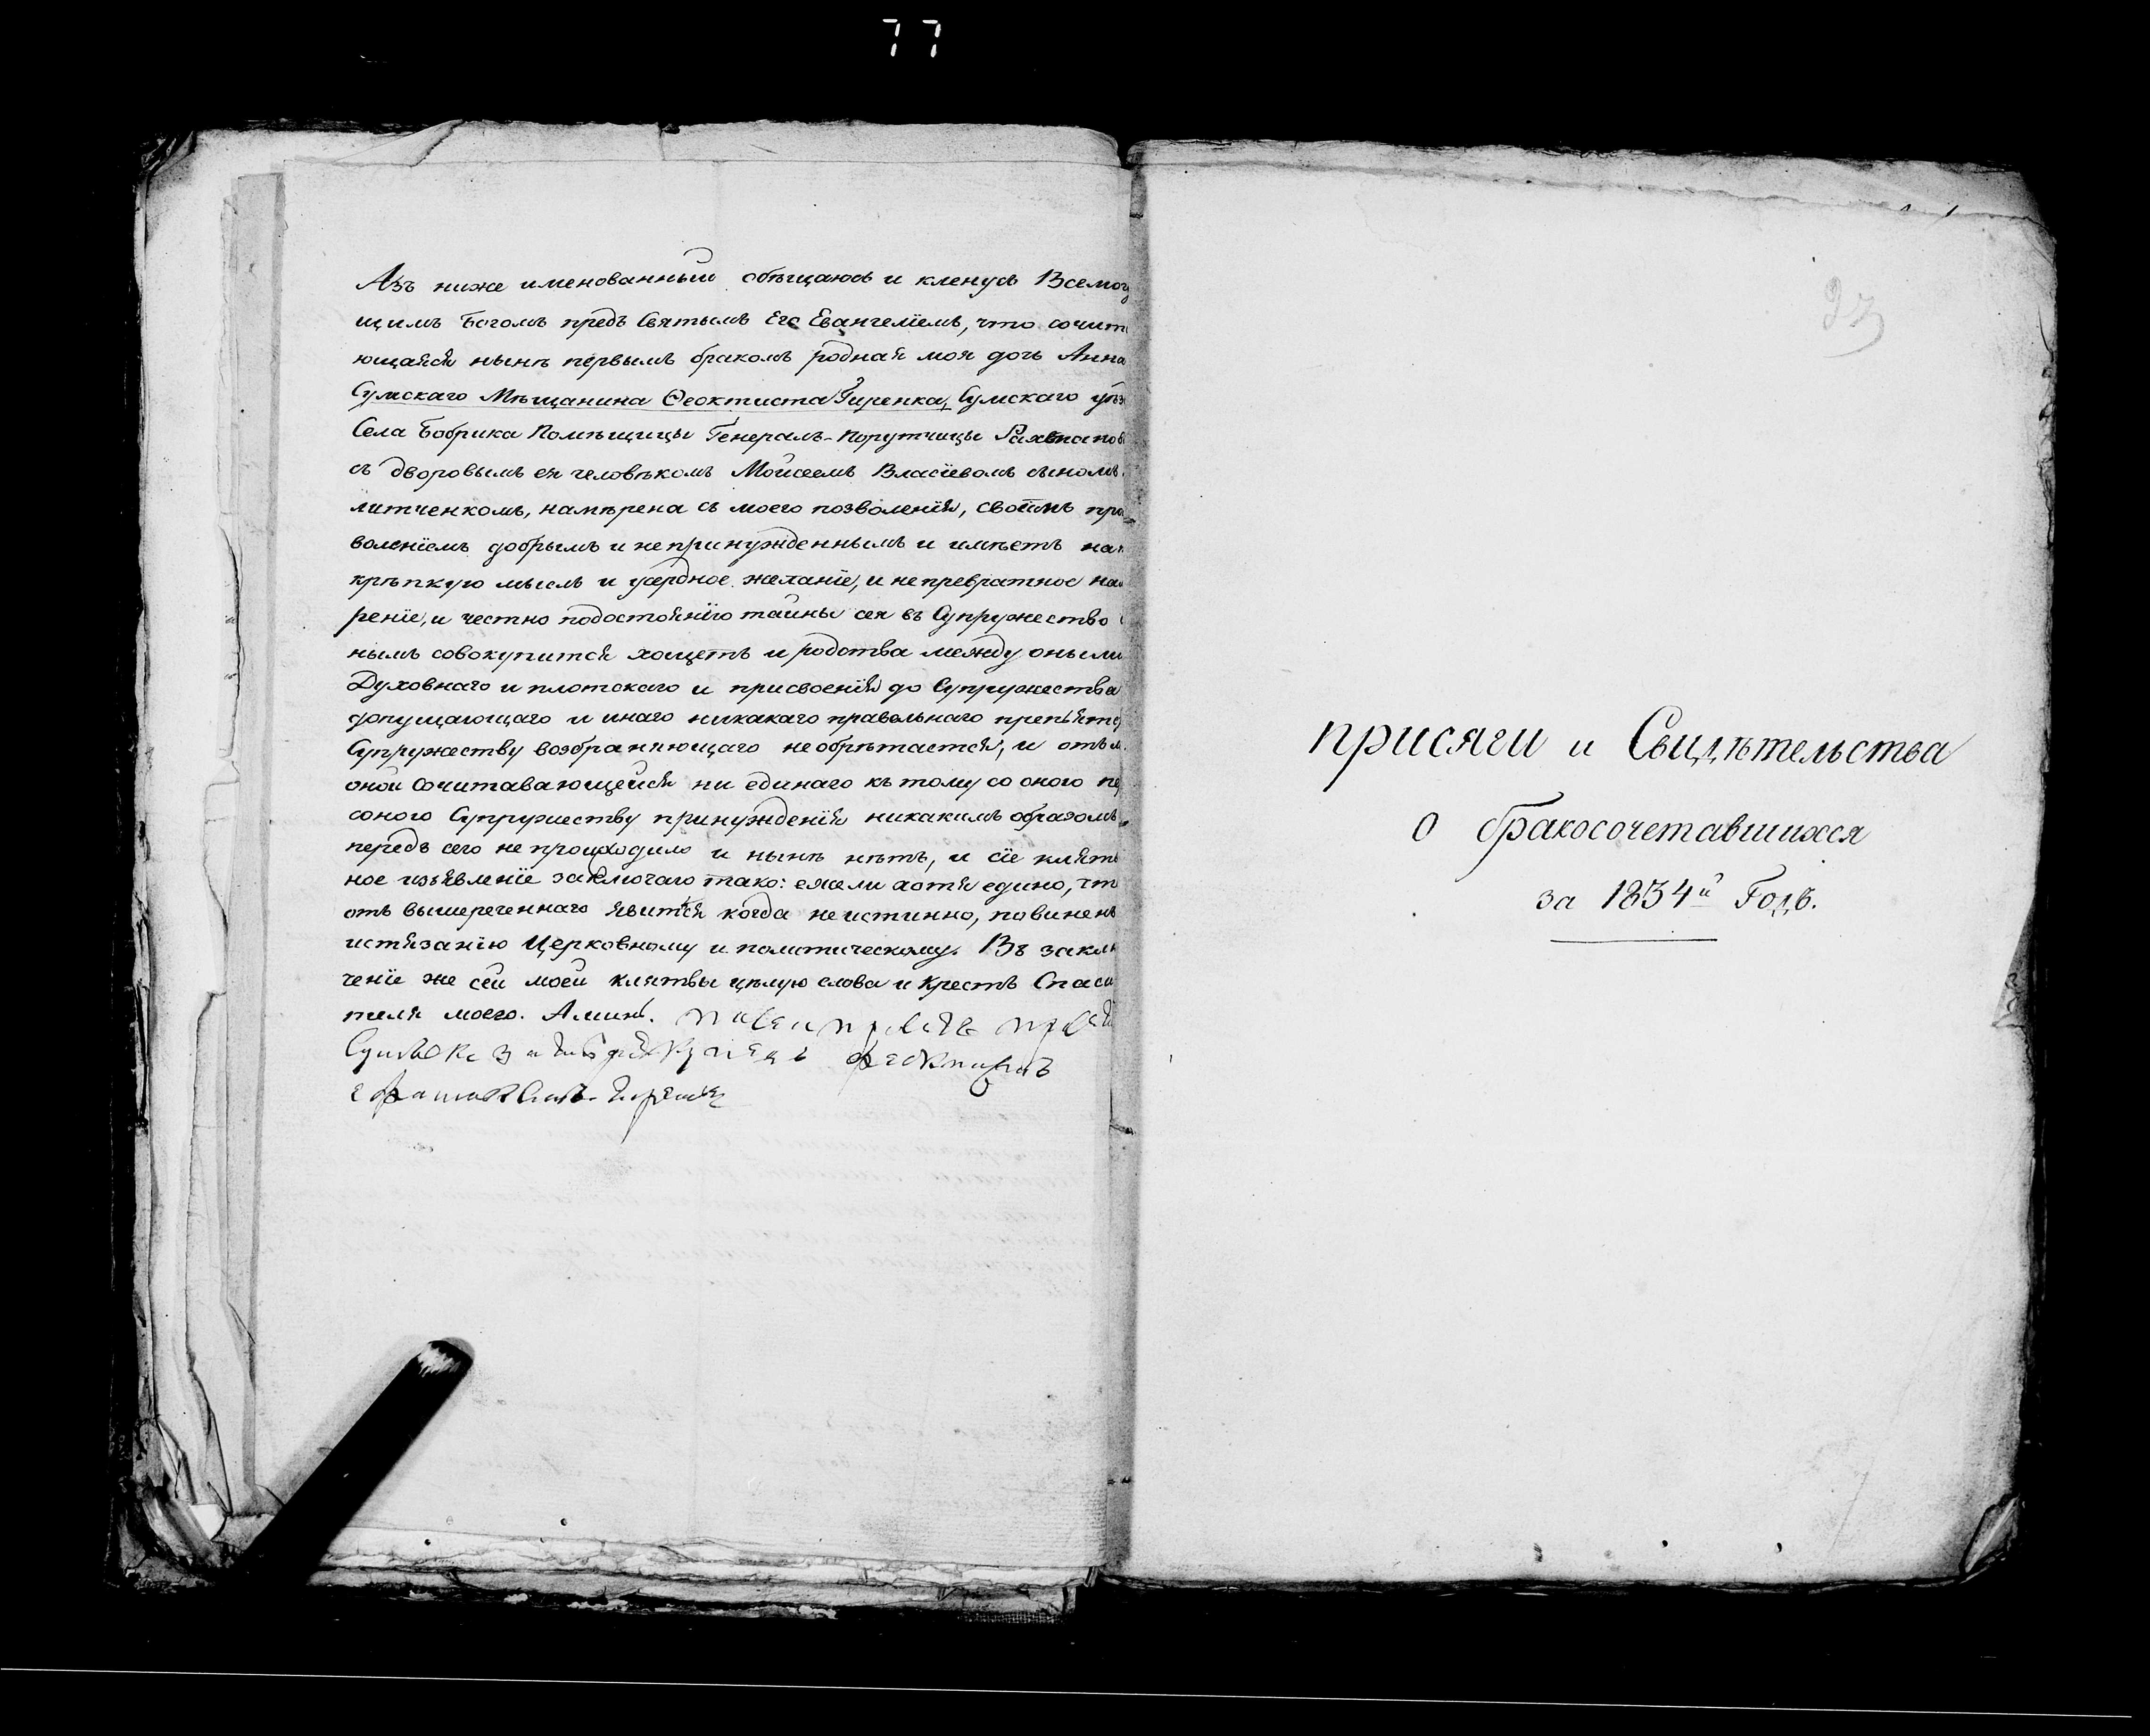 77
Азъ ниже именованный обѣщаюсь и кленусь Всемогу
щимъ Богомъ предъ Святымъ Его Евангелїемъ, что сочит
ющаяся нынѣ первымъ бракомъ родная моя дочь Анна
Сумскаго Мѣщанина Ѳеоктиста Гиренка, Сумскаго уѣз
Села Бобрика Помѣщицы Генералъ-Порутчицы
съ дворовымъ ея человѣкомъ Моисеемъ Власїевомъ сыномъ
литченкомъ, намѣрена съ моего позволенїя, своимъ про
волѣнїемъ добрымъ и непринужденнымъ и имѣетъ на
крѣпкую мысль и усердное желанїе, и непревратное нам
ренїе, и честно подостоянїю тайны сея въ Супружество
нымъ совокупится хощетъ и родства между оными
Духовнаго и плотскаго и присвоенїя до Супружества
допущающаго и инаго никакаго правильнаго препятс
Супружеству возбраняющаго необрѣтается, и отъ м
оной сочитавающейся ни единаго къ тому со оного пе
соного Супружеству принужденїя никакимъ образомъ
передъ сего не происходило и нынѣ нѣтъ, и сїе клят
ное изъявленїе заключаю тако: ежели хотя едино, чт
отъ вышереченнаго явится когда неистинно, повиненъ
истязанїю Церковному и политическому. Въ заклю
ченїе же сей моей клятвы цѣлую слова и Крестъ Спаси
теля моего. Аминь.
Ѳеоктистъ
23
присяги и Свидѣтельства
о бракосочетавшихся
за 1834й Годъ.